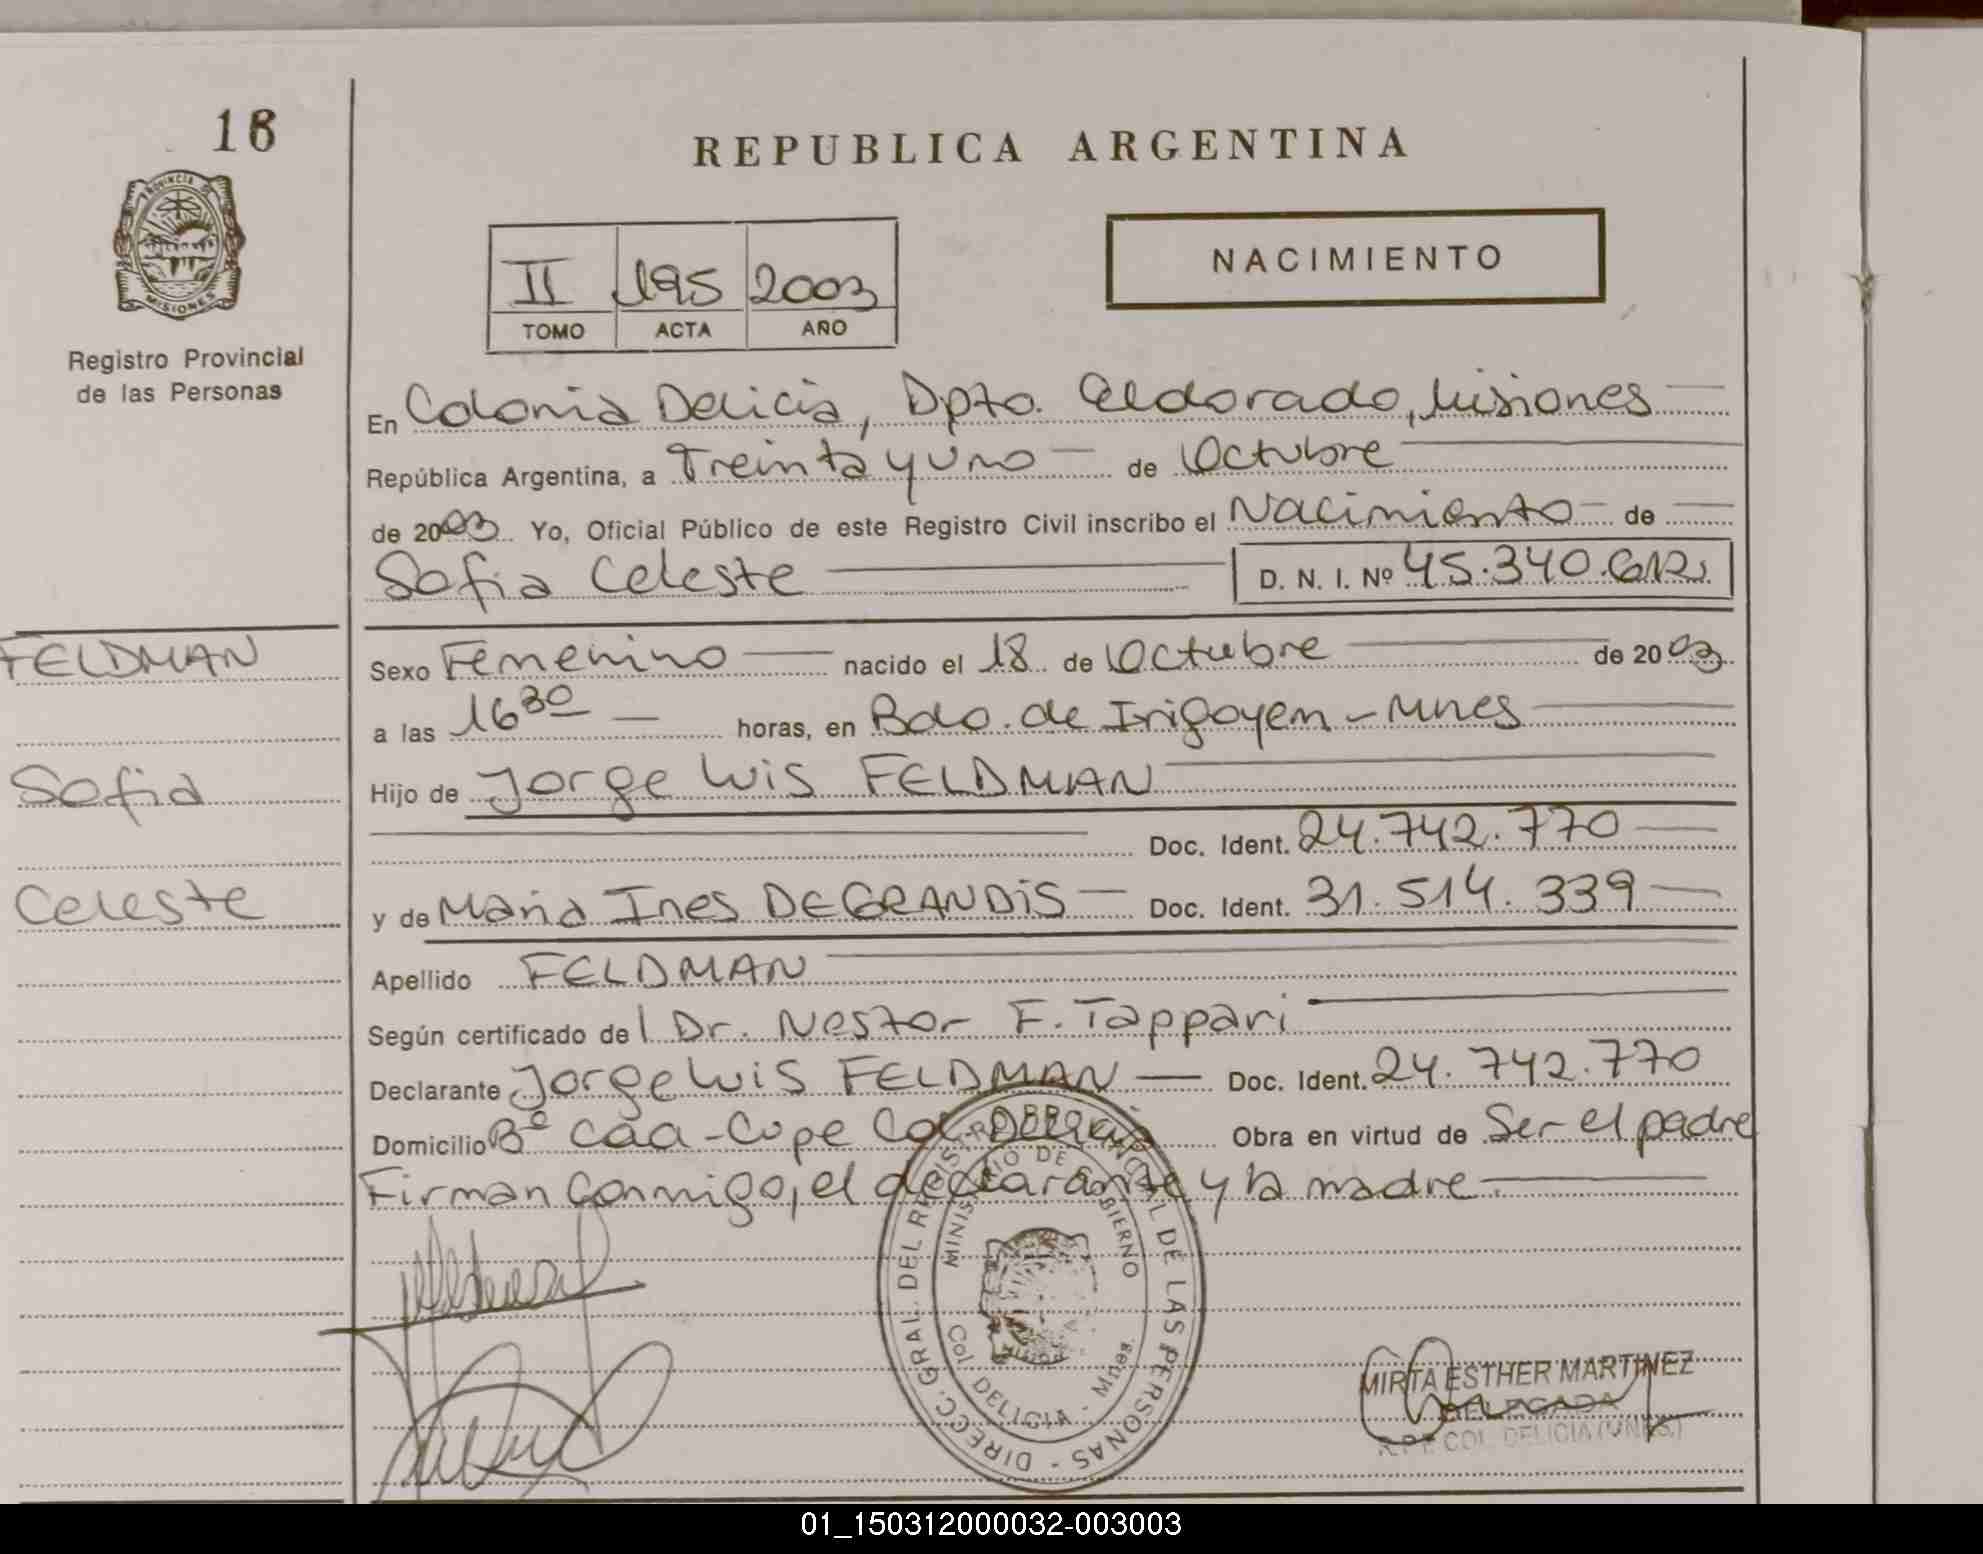 18
REPUBLICA ARGENTINA
PROVINCIA DE
MISIONES
Registro Provincial
de las Personas
II 195 2003
TOMO ACTA AÑO
NACIMIENTO
En Colonia Delicia, Dpto. Eldorado, Misiones
República Argentina, a Treinta y uno de Octubre
de 2003 Yo, Oficial Público de este Registro Civil inscribo el Nacimiento de
Sofia Celeste D. N. I. Nº 45.340.612
FELDMAN
Sexo Femenino nacido el 18 de Octubre de 2003
a las 16 30 horas, en Bdo. de Irigoyen - Mnes
Sofia
Hijo de Jorge Luis FELDMAN
Doc. Ident. 24.742.770
Celeste
y de Maria Ines DEGRANDIS Doc. Ident. 31.514.339
Apellido FELDMAN
Según certificado del Dr. Nestor F. Tappari
Declarante Jorge Luis FELDMAN Doc. Ident. 24.742.770
Domicilio Bº Caa-Cupe Col. Delicia Obra en virtud de Ser el padre
Firman conmigo, el declarante y la madre.
DIRECC. GRAL. DEL REGISTRO PROVINCIAL DE LAS PERSONAS
MINISTERIO DE GOBIERNO
Col DELICIA - Mnes.
MIRTA ESTHER MARTINEZ
DELEGADA
R.P.P. COL. DELICIA (MNES.)
01_150312000032-003003